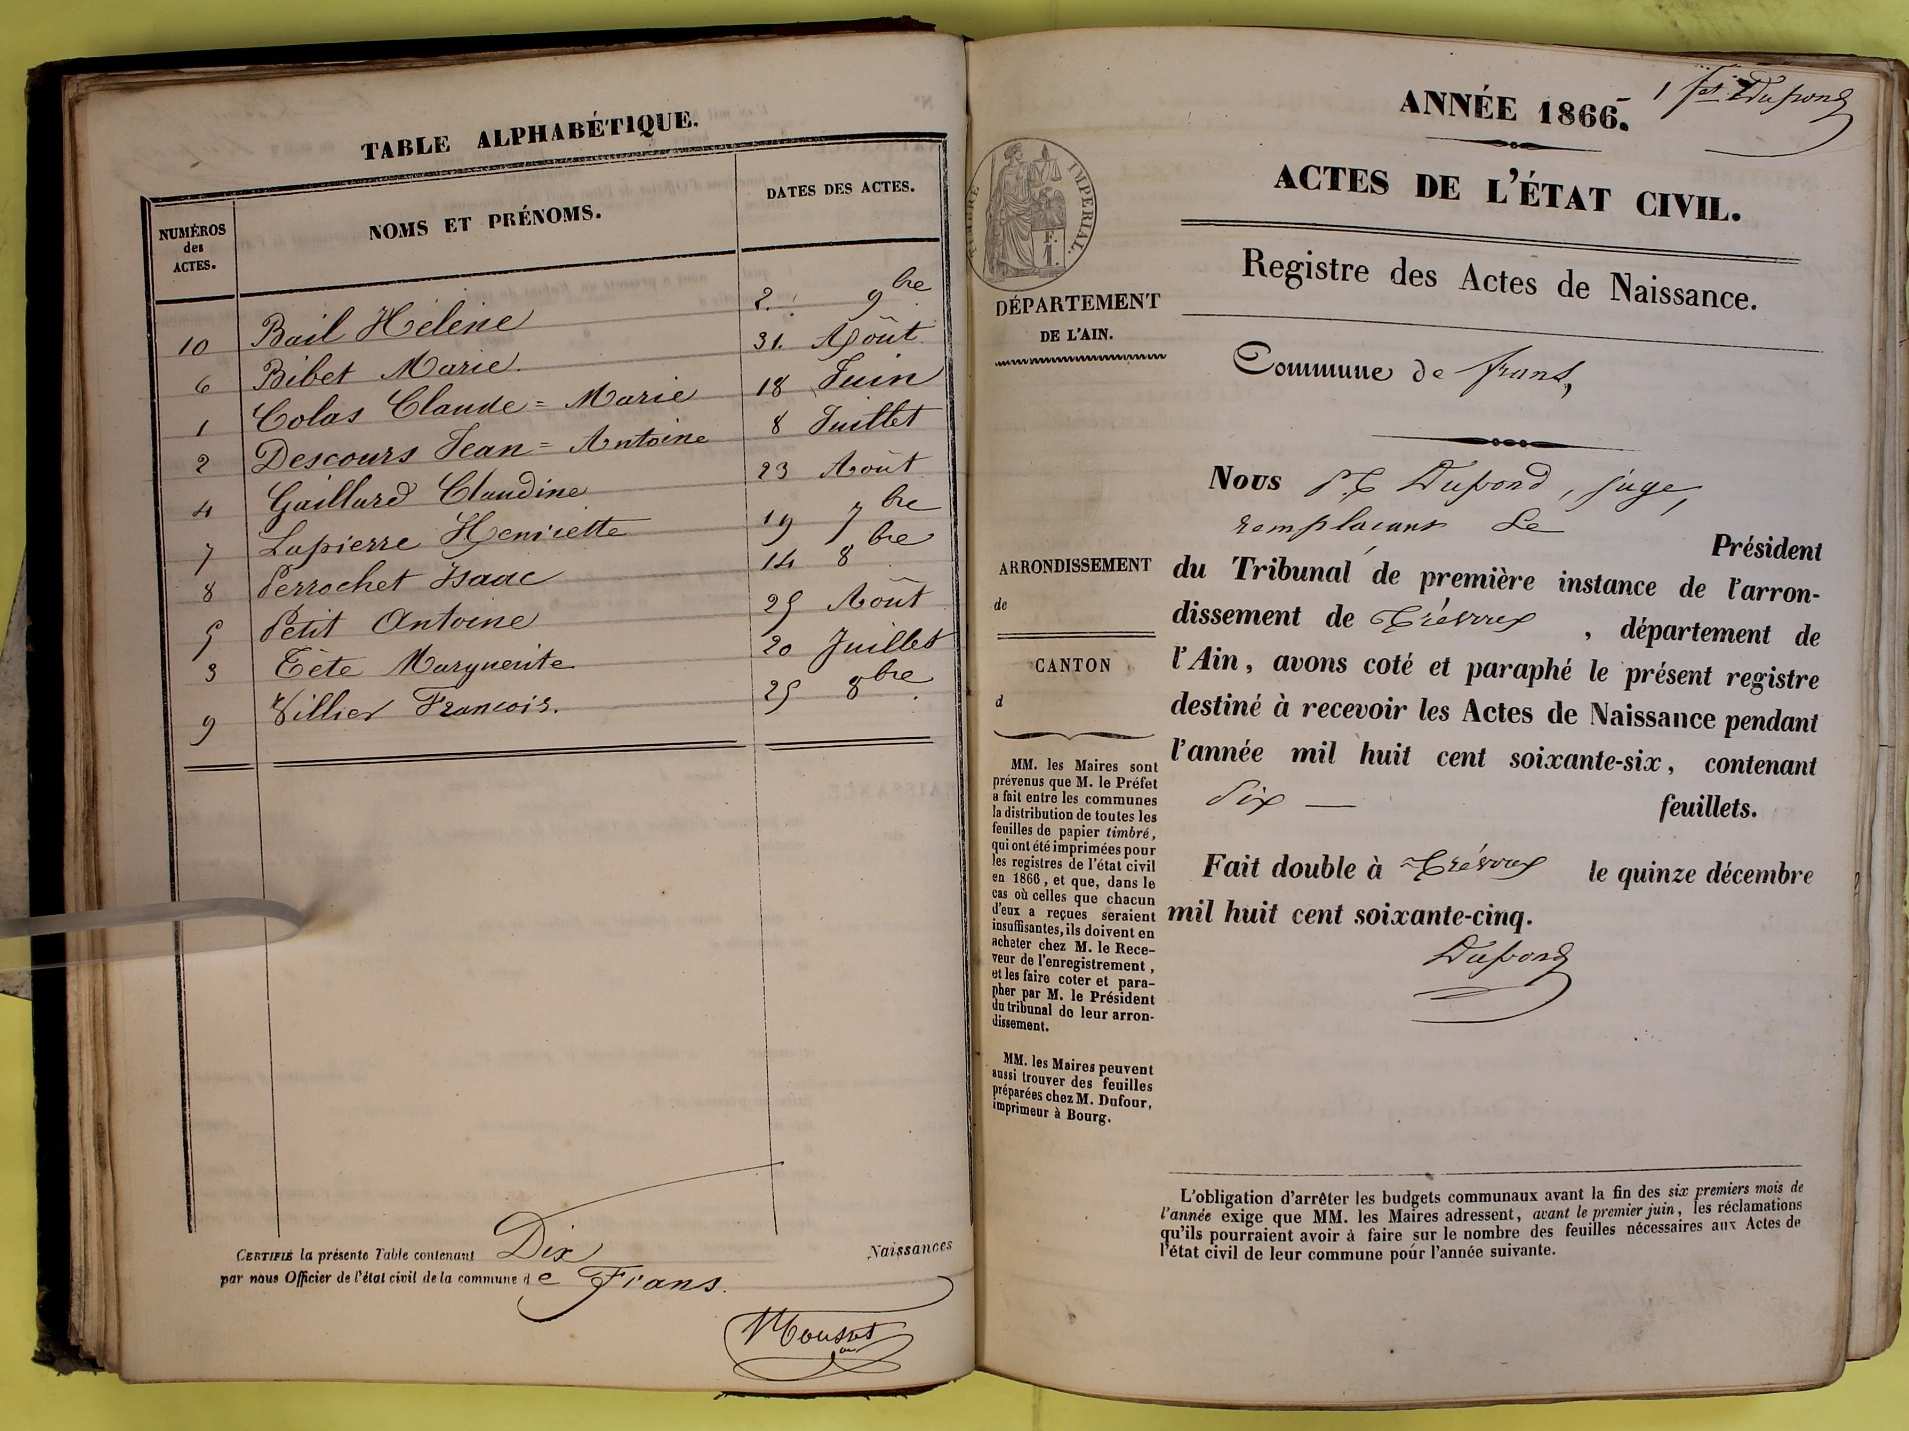 TABLE ALPHABÉTIQUE.
NUMÉROS des ACTES. NOMS ET PRÉNOMS. DATES DES ACTES.
10 Bail Hélène 2. 9bre
6 Bibet Marie. 31. Août
1 Colas Claude = Marie 18 Juin
2 Descours Jean = Antoine 8 Juillet
4 Gaillard Claudine 23 Août
7 Lapierre Henriette 19 7bre
8 Perrochet Isaac 14 8bre
5 Petit Antoine 25 Août
3 Tête Marguerite 20 Juillet
9 Villier François. 25 8bre
CERTIFIÉ la présente Table contenant Dix Naissances
par nous Officier de l'état civil de la commune de Frans.
1 fet Dupond
ANNÉE 1866.
ACTES DE L'ÉTAT CIVIL.
TIMBRE IMPERIAL.
F.
1.
Registre des Actes de Naissance.
DÉPARTEMENT
DE L'AIN.
Commune de frans,
ARRONDISSEMENT
de
CANTON
d
MM. les Maires sont
prévenus que M. le Préfet
a fait entre les communes
la distribution de toutes les
feuilles de papier timbré,
qui ont été imprimées pour
les registres de l'état civil
en 1866, et que, dans le
cas où celles que chacun
d'eux a reçues seraient
insuffisantes, ils doivent en
acheter chez M. le Rece-
veur de l'enregistrement,
et les faire coter et para-
pher par M. le Président
du tribunal de leur arron-
dissement.
MM. les Maires peuvent
aussi trouver des feuilles
préparées chez M. Dufour,
imprimeur à Bourg.
Nous Dupond, juge,
remplaçant le
Président
du Tribunal de première instance de l'arron-
dissement de Trévoux , département de
l'Ain, avons coté et paraphé le présent registre
destiné à recevoir les Actes de Naissance pendant
l'année mil huit cent soixante-six, contenant
Six — feuillets.
Fait double à Trévoux le quinze décembre
mil huit cent soixante-cinq.
Dupond
L'obligation d'arrêter les budgets communaux avant la fin des six premiers mois de
l'année exige que MM. les Maires adressent, avant le premier juin, les réclamations
qu'ils pourraient avoir à faire sur le nombre des feuilles nécessaires aux Actes de
l'état civil de leur commune pour l'année suivante.